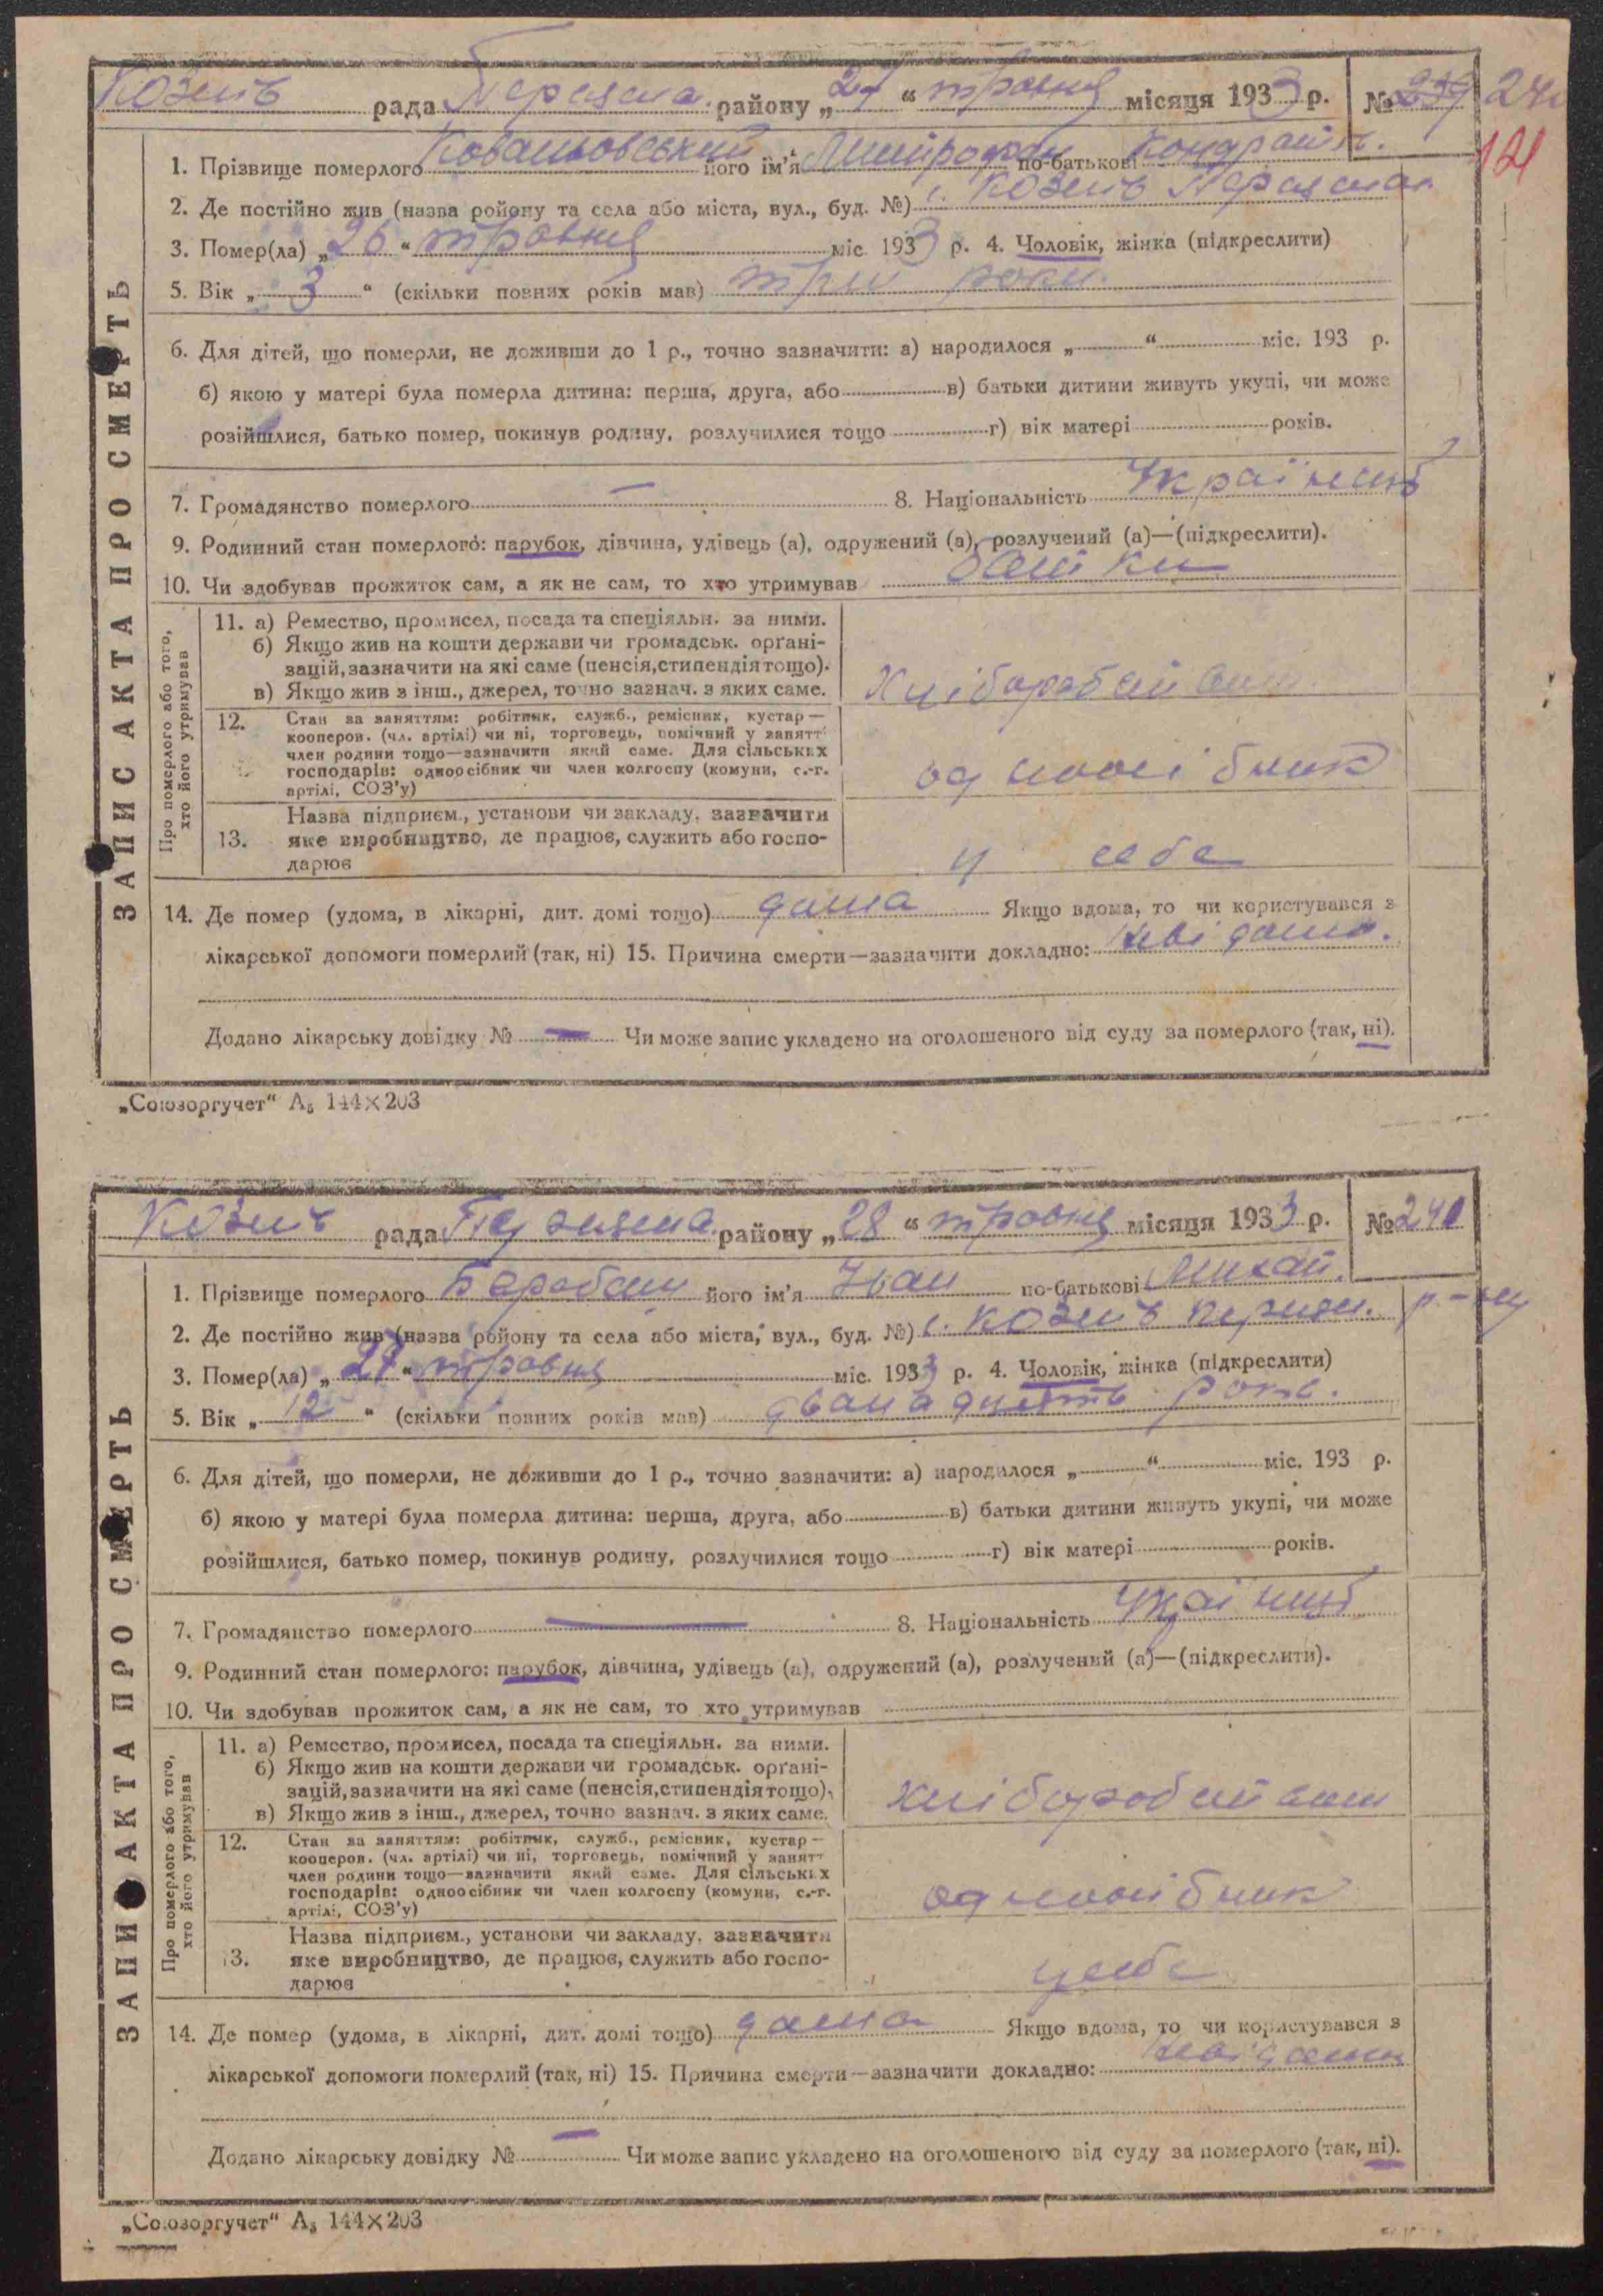 Козинъ рада района району „27“ травня місяця 1933 р. № 239 240
121
1. Прізвище померлого Ковальовський його ім'я Митрофан по-батькові Кондратів.
2. Де постійно жив (назва ройону та села або міста, вул., буд. №) с. Козинъ
3. Помер(ла) „26“ травня міс. 1933 р. 4. Чоловік, жінка (підкреслити)
5. Вік „3“ (скільки повних років мав) три роки.
6. Для дітей, що померли, не доживши до 1 р., точно зазначити: а) народилося „ “ міс. 193 р.
б) якою у матері була померла дитина: перша, друга, або в) батьки дитини живуть укупі, чи може
розійшлися, батько помер, покинув родину, розлучилися тощо г) вік матері років.
7. Громадянство померлого — 8. Національність Українець
9. Родинний стан померлого: парубок, дівчина, удівець (а), одружений (а), розлучений (а)—(підкреслити).
10. Чи здобував прожиток сам, а як не сам, то хто утримував батьки
ЗАПИС АКТА ПРО СМЕРТЬ
Про померлого або того, хто його утримував
11. а) Ремество, промисел, посада та спеціяльн. за ними.
б) Якщо жив на кошти держави чи громадськ. орґані-
зацій, зазначити на які саме (пенсія, стипендія тощо).
в) Якщо жив з інш., джерел, точно зазнач. з яких саме.
12. Стан за заняттям: робітник, служб., ремісник, кустар—
кооперов. (чл. артілі) чи ні, торговець, помічний у занятт
член родини тощо—зазначити який саме. Для сільських
господарів: одноосібник чи член колгоспу (комуни, с.-г.
артілі, СОЗ'у)
одноосібник
13. Назва підприєм., установи чи закладу, зазначити
яке виробництво, де працює, служить або госпо-
дарює
у себе
14. Де помер (удома, в лікарні, дит. домі тощо) дома Якщо вдома, то чи користувався з
лікарської допомоги померлий (так, ні) 15. Причина смерти—зазначити докладно: невідома.
Додано лікарську довідку № — Чи може запис укладено на оголошеного від суду за померлого (так, ні).
„Союзоргучет“ А5 144×203
Козинъ рада району „28“ травня місяця 1933 р. № 240
1. Прізвище померлого Барабаш його ім'я Іван по-батькові Михай.
2. Де постійно жив (назва ройону та села або міста, вул., буд. №) с. Козинъ р-ну
3. Помер(ла) „27“ травня міс. 1933 р. 4. Чоловік, жінка (підкреслити)
5. Вік „12“ (скільки повних років мав) дванадцять років.
6. Для дітей, що померли, не доживши до 1 р., точно зазначити: а) народилося „ “ міс. 193 р.
б) якою у матері була померла дитина: перша, друга, або в) батьки дитини живуть укупі, чи може
розійшлися, батько помер, покинув родину, розлучилися тощо г) вік матері років.
7. Громадянство померлого — 8. Національність Українець
9. Родинний стан померлого: парубок, дівчина, удівець (а), одружений (а), розлучений (а)—(підкреслити).
10. Чи здобував прожиток сам, а як не сам, то хто утримував
ЗАПИС АКТА ПРО СМЕРТЬ
Про померлого або того, хто його утримував
11. а) Ремество, промисел, посада та спеціяльн. за ними.
б) Якщо жив на кошти держави чи громадськ. орґані-
зацій, зазначити на які саме (пенсія, стипендія тощо).
в) Якщо жив з інш., джерел, точно зазнач. з яких саме.
12. Стан за заняттям: робітник, служб., ремісник, кустар—
кооперов. (чл. артілі) чи ні, торговець, помічний у занятт
член родини тощо—зазначити який саме. Для сільських
господарів: одноосібник чи член колгоспу (комуни, с.-г.
артілі, СОЗ'у)
одноосібник
13. Назва підприєм., установи чи закладу, зазначити
яке виробництво, де працює, служить або госпо-
дарює
у себе
14. Де помер (удома, в лікарні, дит. домі тощо) дома Якщо вдома, то чи користувався з
лікарської допомоги померлий (так, ні) 15. Причина смерти—зазначити докладно: невідома
Додано лікарську довідку № — Чи може запис укладено на оголошеного від суду за померлого (так, ні).
„Союзоргучет“ А5 144×203